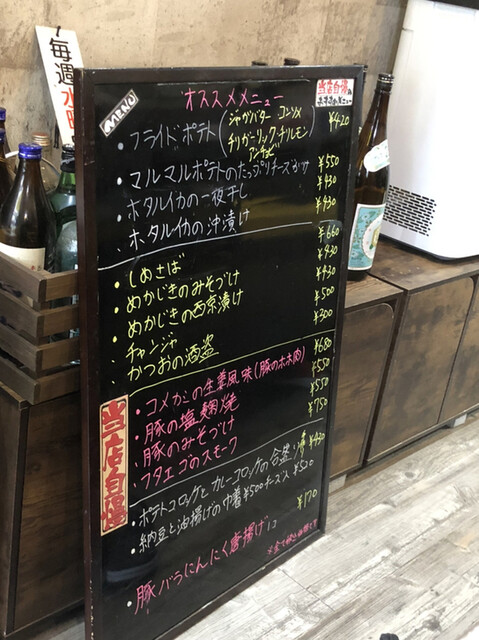 毎週水曜
MENU
オススメメニュー
当店自慢
おすすめメニュー
・フライドポテト(ジャガバター コンソメ ¥420
チリガーリック、チリレモン
アンチョビ)
・マルマルポテトのたっぷりチーズがけ ¥550
・ホタルイカの一夜干し ¥430
・ホタルイカの沖漬け ¥430
・しめさば ¥660
・めかじきのみそづけ ¥430
・めかじきの西京漬け ¥430
・チャンジャ ¥500
・かつおの酒盗 ¥300
当店自慢
・コメカミの生姜風味(豚のホホ肉) ¥680
・豚の塩麹焼 ¥550
・豚のみそづけ ¥550
・フタエゴのスモーク ¥750
・ポテトコロッケとカレーコロッケの合盛り ¥430
・納豆と油揚げの巾着¥500チーズ入¥520
・豚バラにんにく唐揚げ1コ ¥170
※全て税込価格です